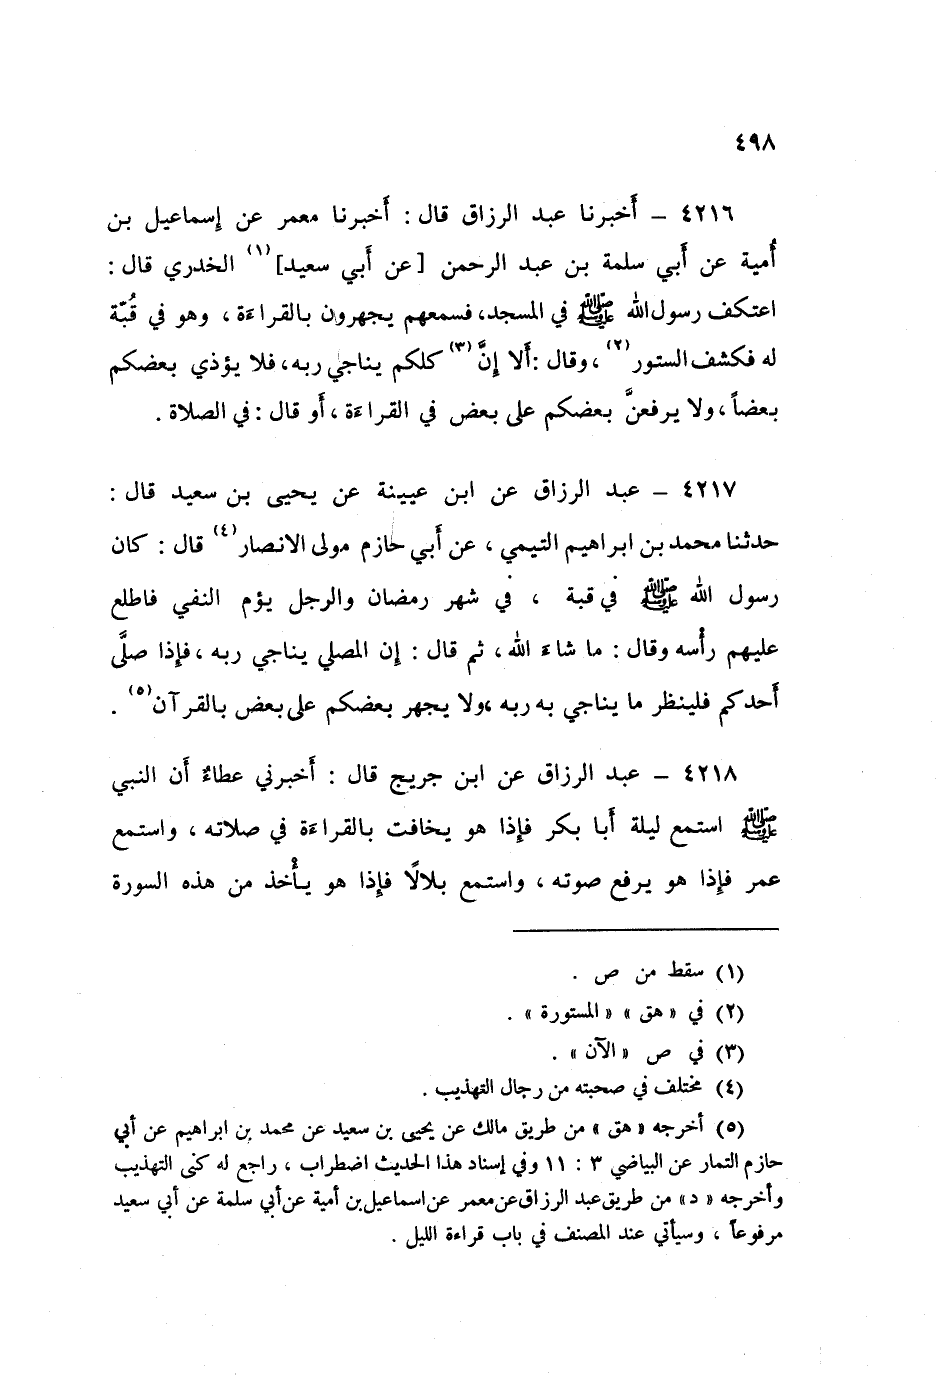 ٤٩٨
٤٢١٦ – أخبرنا عبد الرزاق قال : أخبرنا معمر عن إسماعيل بن
أمية عن أبي سلمة بن عبد الرحمن [عن أبي سعيد](١) الخدري قال :
اعتكف رسول الله ﷺ في المسجد، فسمعهم يجهرون بالقراءة ، وهو في قُبّة
له فكشف الستور(٢) ، وقال : ألا إنَّ(٣) كلكم يناجي ربه، فلا يؤذي بعضكم
بعضاً ، ولا يرفعنَّ بعضكم على بعض في القراءة ، أو قال : في الصلاة .
٤٢١٧ – عبد الرزاق عن ابن عيينة عن يحيى بن سعيد قال :
حدثنا محمد بن ابراهيم التيمي ، عن أبي حازم مولى الانصار(٤) قال : كان
رسول الله ﷺ في قبة ، في شهر رمضان والرجل يؤم النفي فاطلع
عليهم رأسه وقال : ما شاء الله ، ثم قال : إن المصلي يناجي ربه ، فإذا صلَّى
أحدكم فلينظر ما يناجي به ربه ، ولا يجهر بعضكم على بعض بالقرآن(٥) .
٤٢١٨ – عبد الرزاق عن ابن جريج قال : أخبرني عطاءٌ أن النبي
ﷺ استمع ليلة أبا بكر فإذا هو يخافت بالقراءة في صلاته ، واستمع
عمر فإذا هو يرفع صوته ، واستمع بلالًا فإذا هو يأخذ من هذه السورة
(١) سقط من ص .
(٢) في « هق » « المستورة » .
(٣) في ص « الآن » .
(٤) مختلف في صحبته من رجال التهذيب .
(٥) أخرجه « هق » من طريق مالك عن يحيى بن سعيد عن محمد بن ابراهيم عن أبي
حازم التمار عن البياضي ٣ : ١١ وفي إسناد هذا الحديث اضطراب ، راجع له كنى التهذيب
وأخرجه « د » من طريق عبد الرزاق عن معمر عن اسماعيل بن أمية عن أبي سلمة عن أبي سعيد
مرفوعاً ، وسيأتي عند المصنف في باب قراءة الليل .